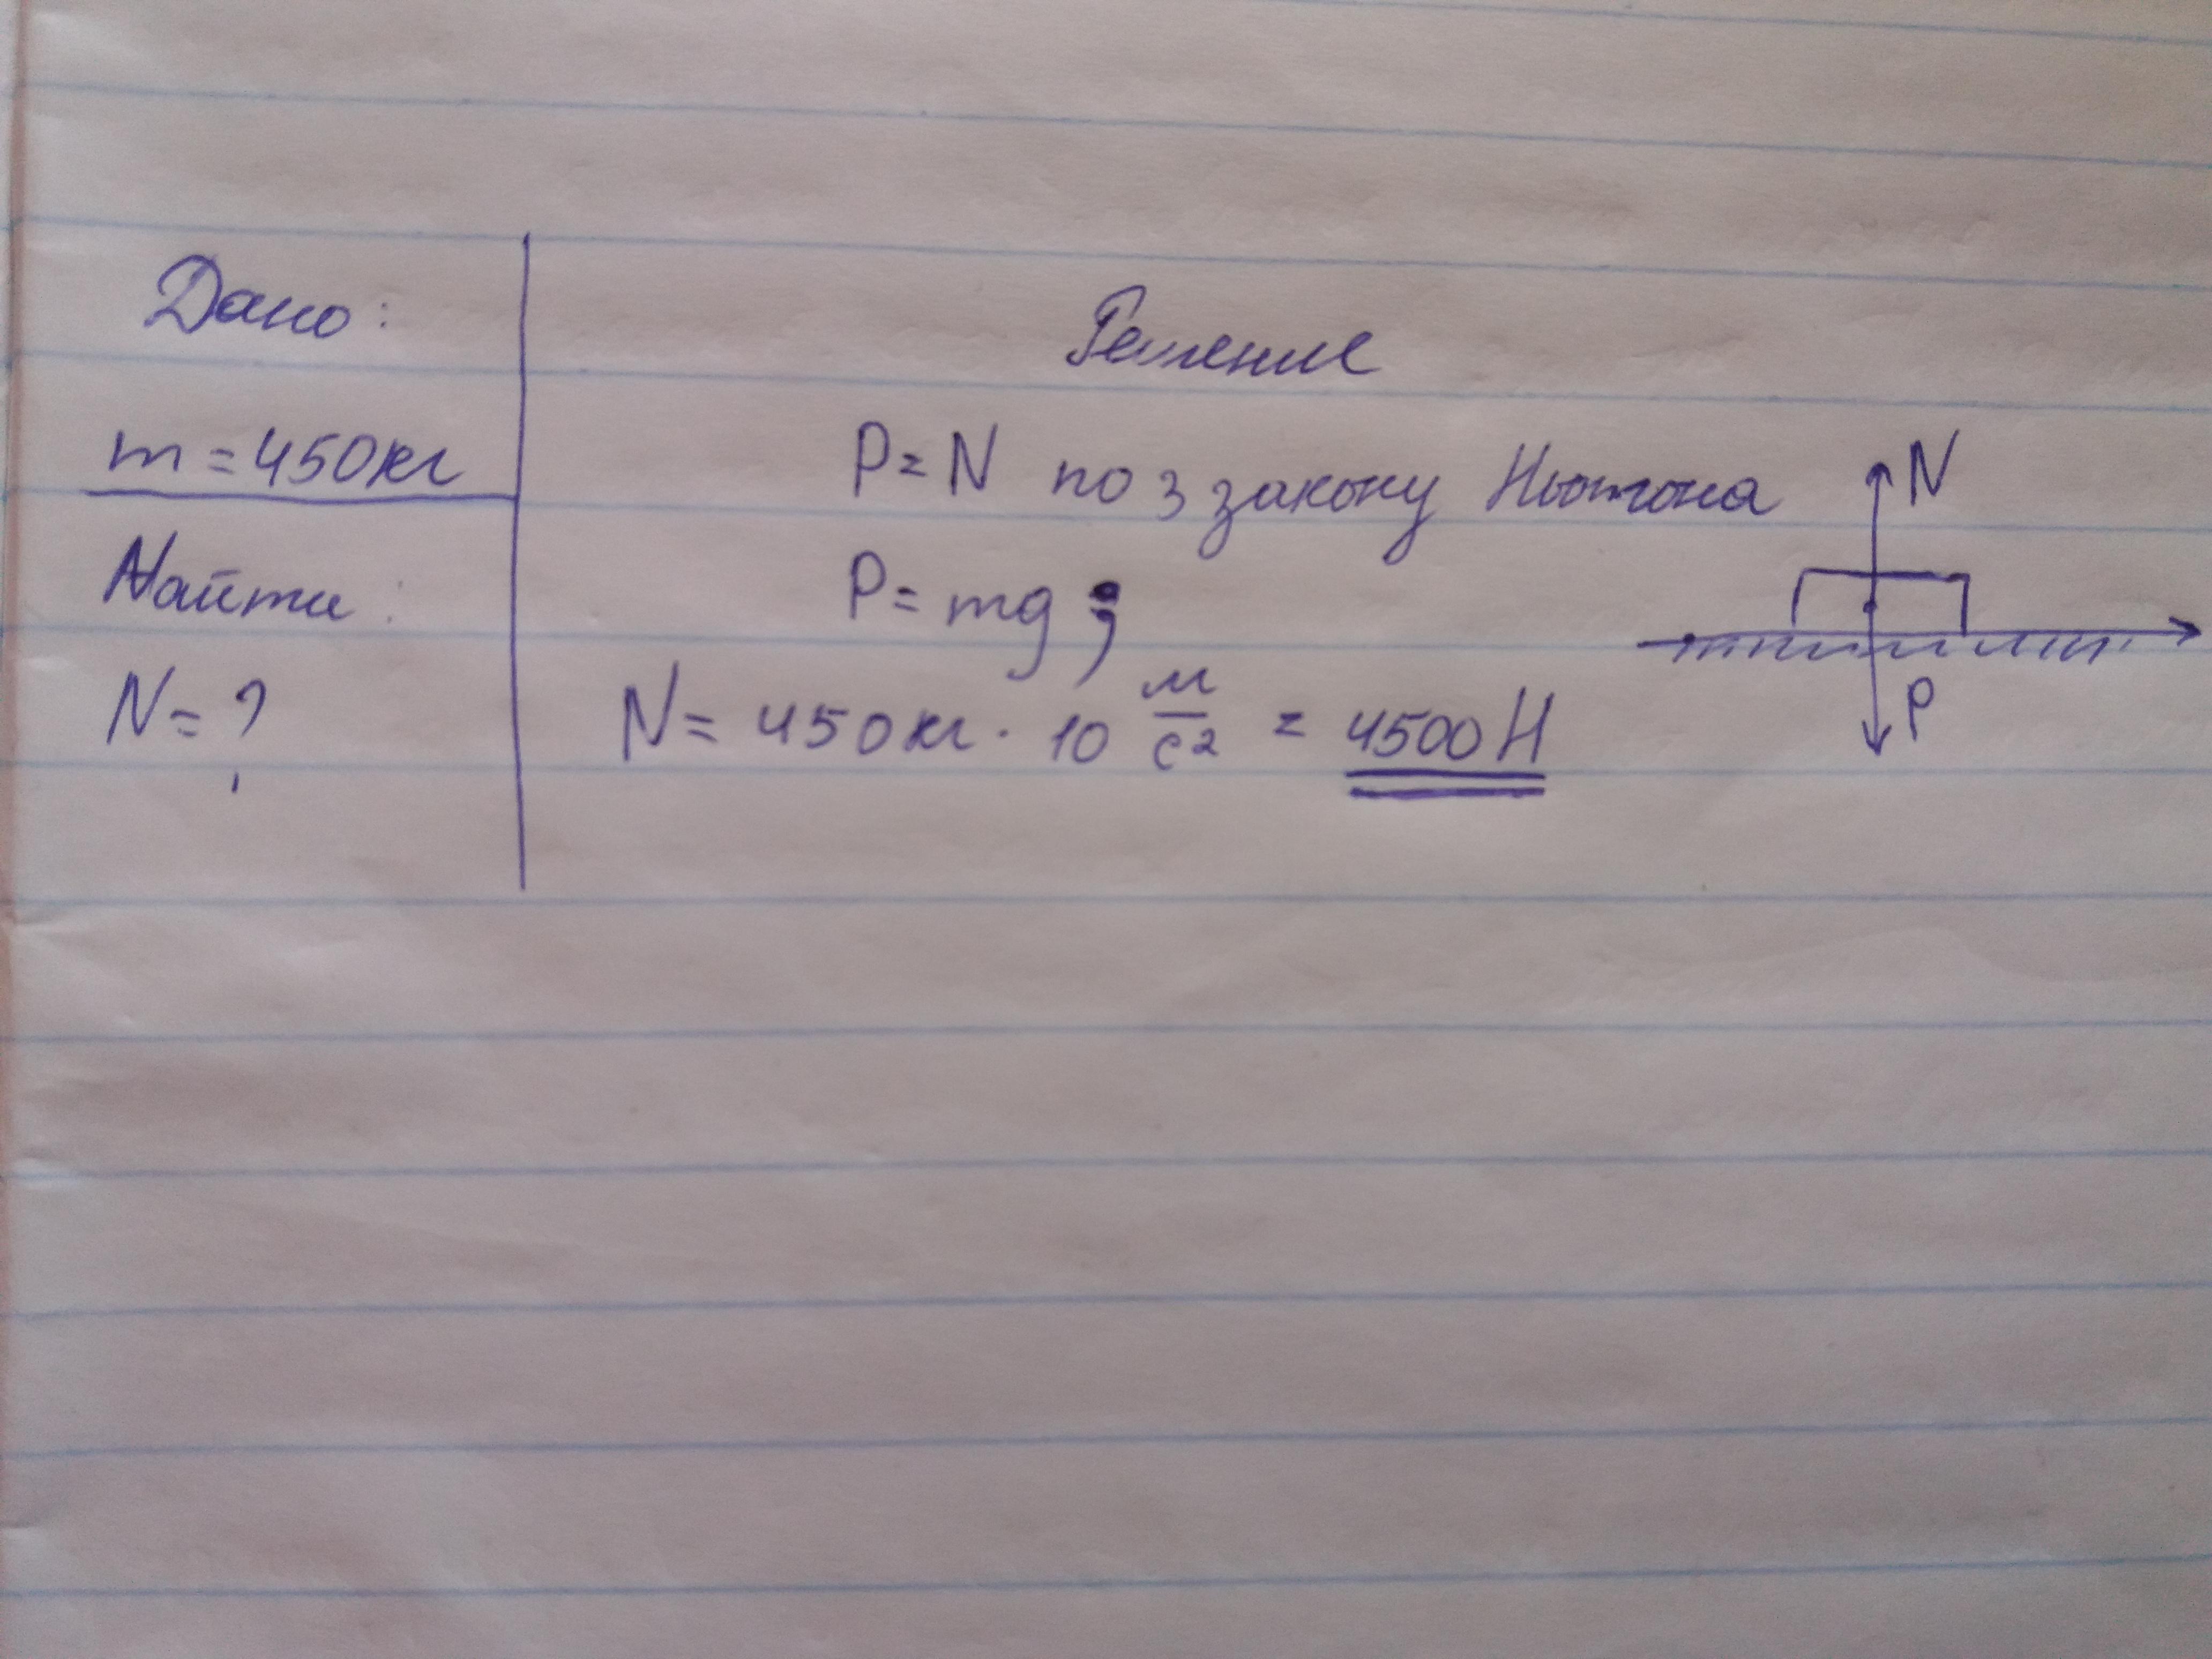 Дано:
m = 450 кг
Найти:
N = ?
Решение
P = N по 3 закону Ньютона
P = mg ;
N = 450 кг · 10 м/с² = 4500 Н
N
P